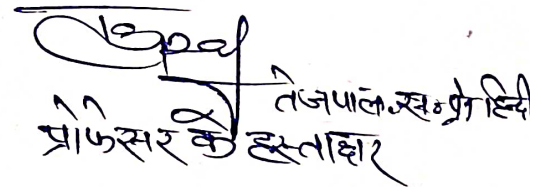 तेजपाल स॰प्रो हिन्दी
प्रोफेसर के हस्ताक्षर